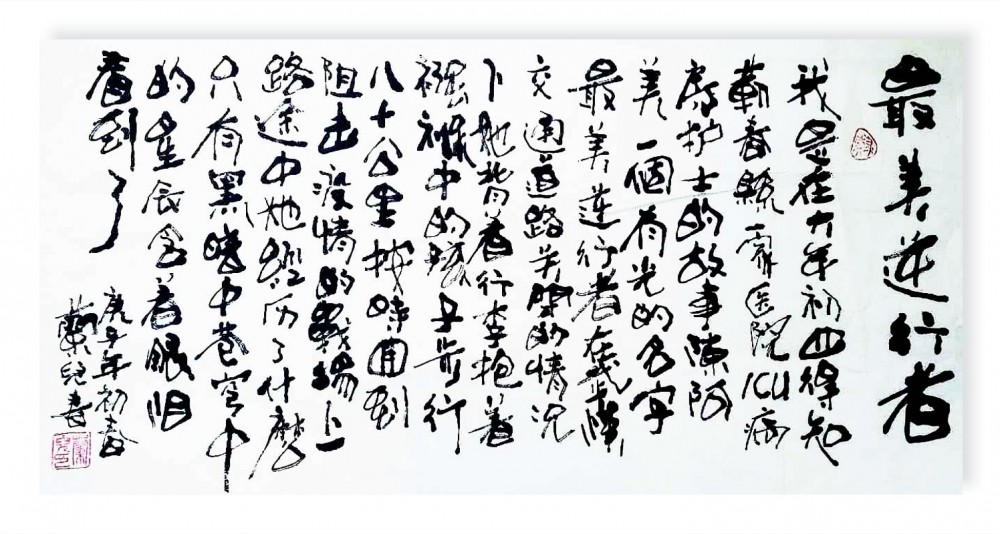 最美逆行者
我是在大年初四得知
蕲春縣一家医院ICU病
房护士的故事陳阿
美一個有光的名字
最美逆行者在
交通道路关闭的情况
下她背着行李抱着
襁褓中的孩子步行
八十公里按時回到
阻击疫情的戰場上
路途中她經历了什麽
只有黑暗中苍穹中
的星辰含着眼泪
看到了
庚子年初春
蘭兒書